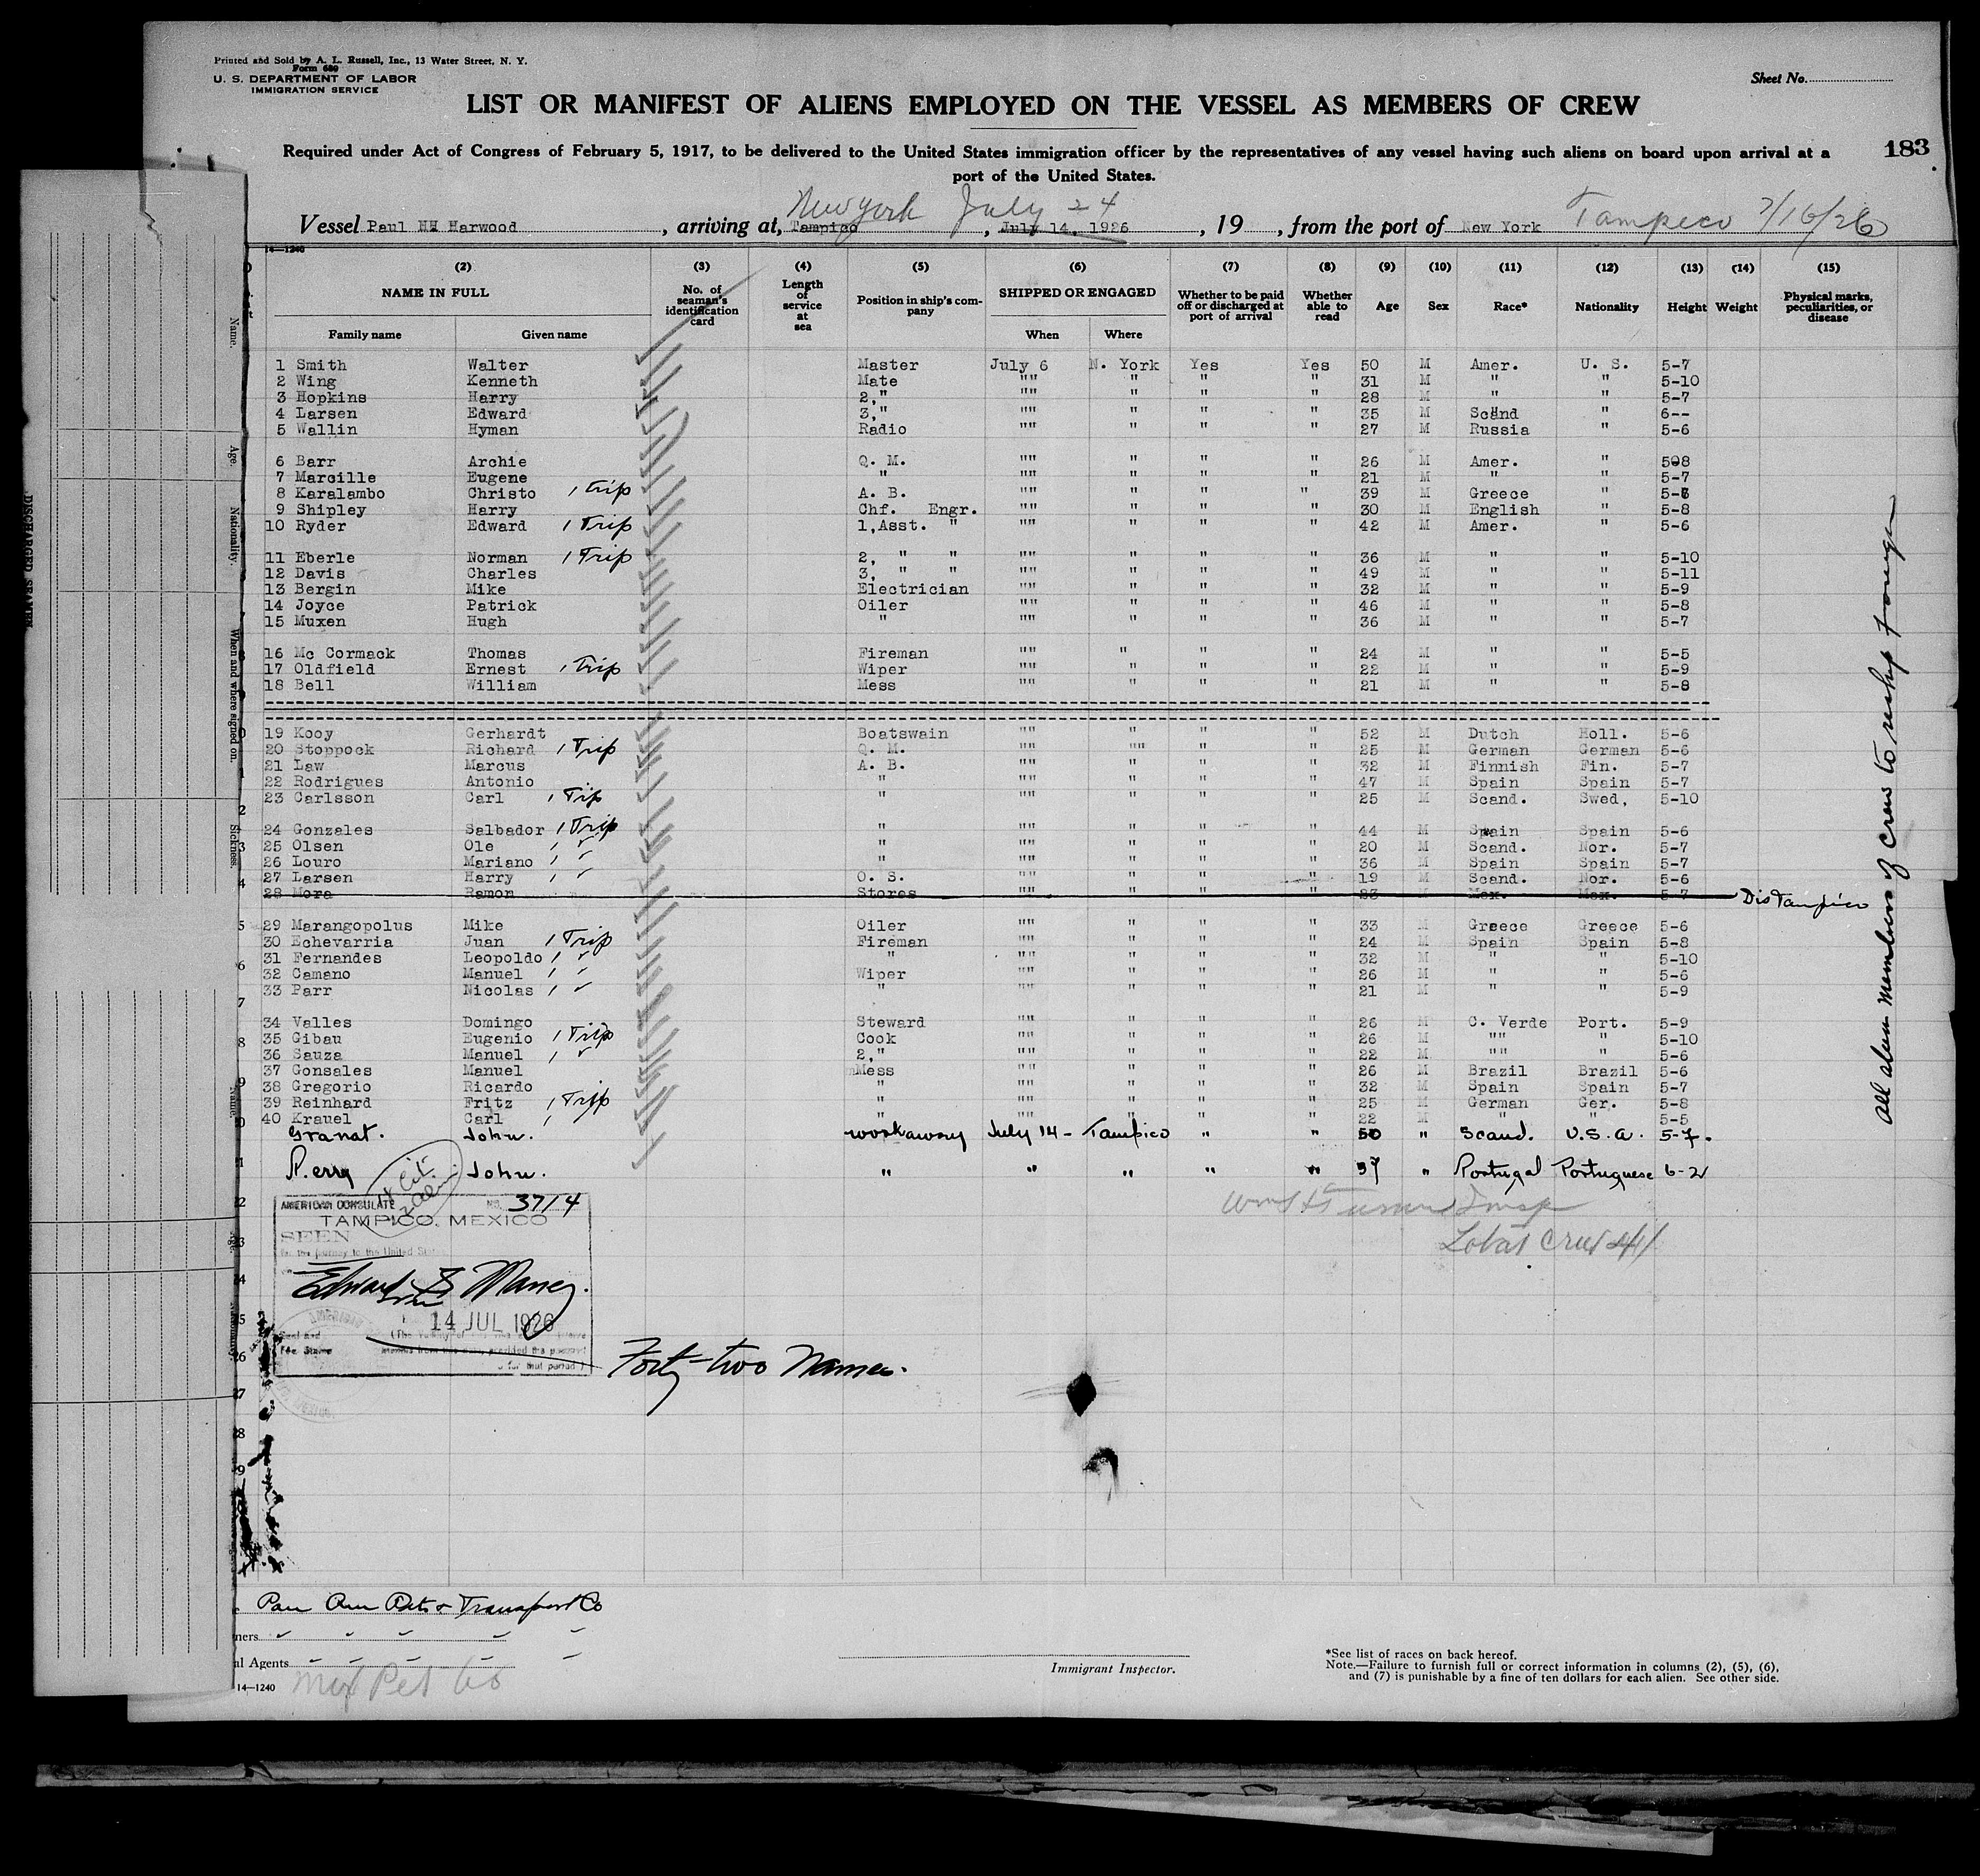 Printed and Sold by A. L. Russell, Inc., 13 Water Street, N. Y.
Form 680
U. S. DEPARTMENT OF LABOR
IMMIGRATION SERVICE
Sheet No.
LIST OR MANIFEST OF ALIENS EMPLOYED ON THE VESSEL AS MEMBERS OF CREW
Required under Act of Congress of February 5, 1917, to be delivered to the United States immigration officer by the representatives of any vessel having such aliens on board upon arrival at a
port of the United States.
183
New york July 24
Vessel Paul HH Harwood, arriving at, Tampico, July 14, 1926, 19 , from the port of New York Tampico 7/16/26
14—1240
(2) (3) (4) (5) (6) (7) (8) (9) (10) (11) (12) (13) (14) (15)
NAME IN FULL No. of seaman's identification card Length of service at sea Position in ship's company SHIPPED OR ENGAGED Whether to be paid off or discharged at port of arrival Whether able to read Age Sex Race* Nationality Height Weight Physical marks, peculiarities, or disease
Family name Given name When Where
1 Smith Walter Master July 6 N. York Yes Yes 50 M Amer. U. S. 5-7
2 Wing Kenneth Mate "" " " " 31 M " " 5-10
3 Hopkins Harry 2," "" " " " 28 M " " 5-7
4 Larsen Edward 3," "" " " " 35 M Scand " 6--
5 Wallin Hyman Radio "" " " " 27 M Russia " 5-6
6 Barr Archie Q. M. "" " " " 26 M Amer. " 508
7 Marcille Eugene " "" " " " 21 M " " 5-7
8 Karalambo Christo 1 trip A. B. "" " " " 39 M Greece " 5-6
9 Shipley Harry Chf. Engr. "" " " " 30 M English " 5-8
10 Ryder Edward 1 Trip 1,Asst. " "" " " " 42 M Amer. " 5-6
11 Eberle Norman 1 Trip 2, " " "" " " " 36 M " " 5-10
12 Davis Charles 3, " " "" " " " 49 M " " 5-11
13 Bergin Mike Electrician "" " " " 32 M " " 5-9
14 Joyce Patrick Oiler "" " " " 46 M " " 5-8
15 Muxen Hugh " "" " " " 36 M " " 5-7
16 Mc Cormack Thomas Fireman "" " " " 24 M " " 5-5
17 Oldfield Ernest 1 Trip Wiper "" " " " 22 M " " 5-9
18 Bell William Mess "" " " " 21 M " " 5-8
19 Kooy Gerhardt Boatswain "" " " " 52 M Dutch Holl. 5-6
20 Stoppock Richard 1 Trip Q. M. "" "" " " 25 M German German 5-6
21 Law Marcus A. B. "" " " " 32 M Finnish Fin. 5-7
22 Rodrigues Antonio " "" " " " 47 M Spain Spain 5-7
23 Carlsson Carl 1 Trip " "" " " " 25 M Scand. Swed, 5-10
24 Gonzales Salbador 1 Trip " "" " " " 44 M Spain Spain 5-6
25 Olsen Ole 1 ✓ " "" " " " 20 M Scand. Nor. 5-7
26 Louro Mariano 1 ✓ " "" " " " 36 M Spain Spain 5-7
27 Larsen Harry 1 ✓ O. S. "" " " " 19 M Scand. Nor. 5-6
28 Mora Ramon Stores "" " " " M Mex. Mex. 5-7 Dis Tampico
29 Marangopolus Mike Oiler "" " " " 33 M Greece Greece 5-6
30 Echevarria Juan 1 Trip Fireman "" " " " 24 M Spain Spain 5-8
31 Fernandes Leopoldo 1 ✓ " "" " " " 32 M " " 5-10
32 Camano Manuel 1 ✓ Wiper "" " " " 26 M " " 5-6
33 Parr Nicolas 1 ✓ " "" " " " 21 M " " 5-9
34 Valles Domingo Steward "" " " " 26 M C. Verde Port. 5-9
35 Gibau Eugenio 1 Trip Cook "" " " " 26 M "" " 5-10
36 Sauza Manuel 1 ✓ 2," "" " " " 22 M "" " 5-6
37 Gonsales Manuel Mess "" " " " 26 M Brazil Brazil 5-6
38 Gregorio Ricardo " "" " " " 32 M Spain Spain 5-7
39 Reinhard Fritz 1 Trip " "" " " " 25 M German Ger. 5-8
40 Krauel Carl 1 " "" " " " 22 M " " 5-5
Granat. John. workaway July 14 - Tampico " " 50 " Scand. U.S.A. 5-7.
Perry John. " " " " " 37 " Portugal Portuguese 6-2
All alien members of crew to reship foreign
AMERICAN CONSULATE NO. 3714
TAMPICO, MEXICO
SEEN
for the journey to the United States
Edward S Maney.
14 JUL 1926
Fee Stamp
Forty-two Names.
Pan Am Pet & Transport Co
ners
al Agents
Mex Pet Co
14—1240
Immigrant Inspector.
*See list of races on back hereof.
Note.—Failure to furnish full or correct information in columns (2), (5), (6),
and (7) is punishable by a fine of ten dollars for each alien. See other side.
Name.
Age.
Nationality.
When and where signed on.
Sickness.
DISCHARGED SEAMEN